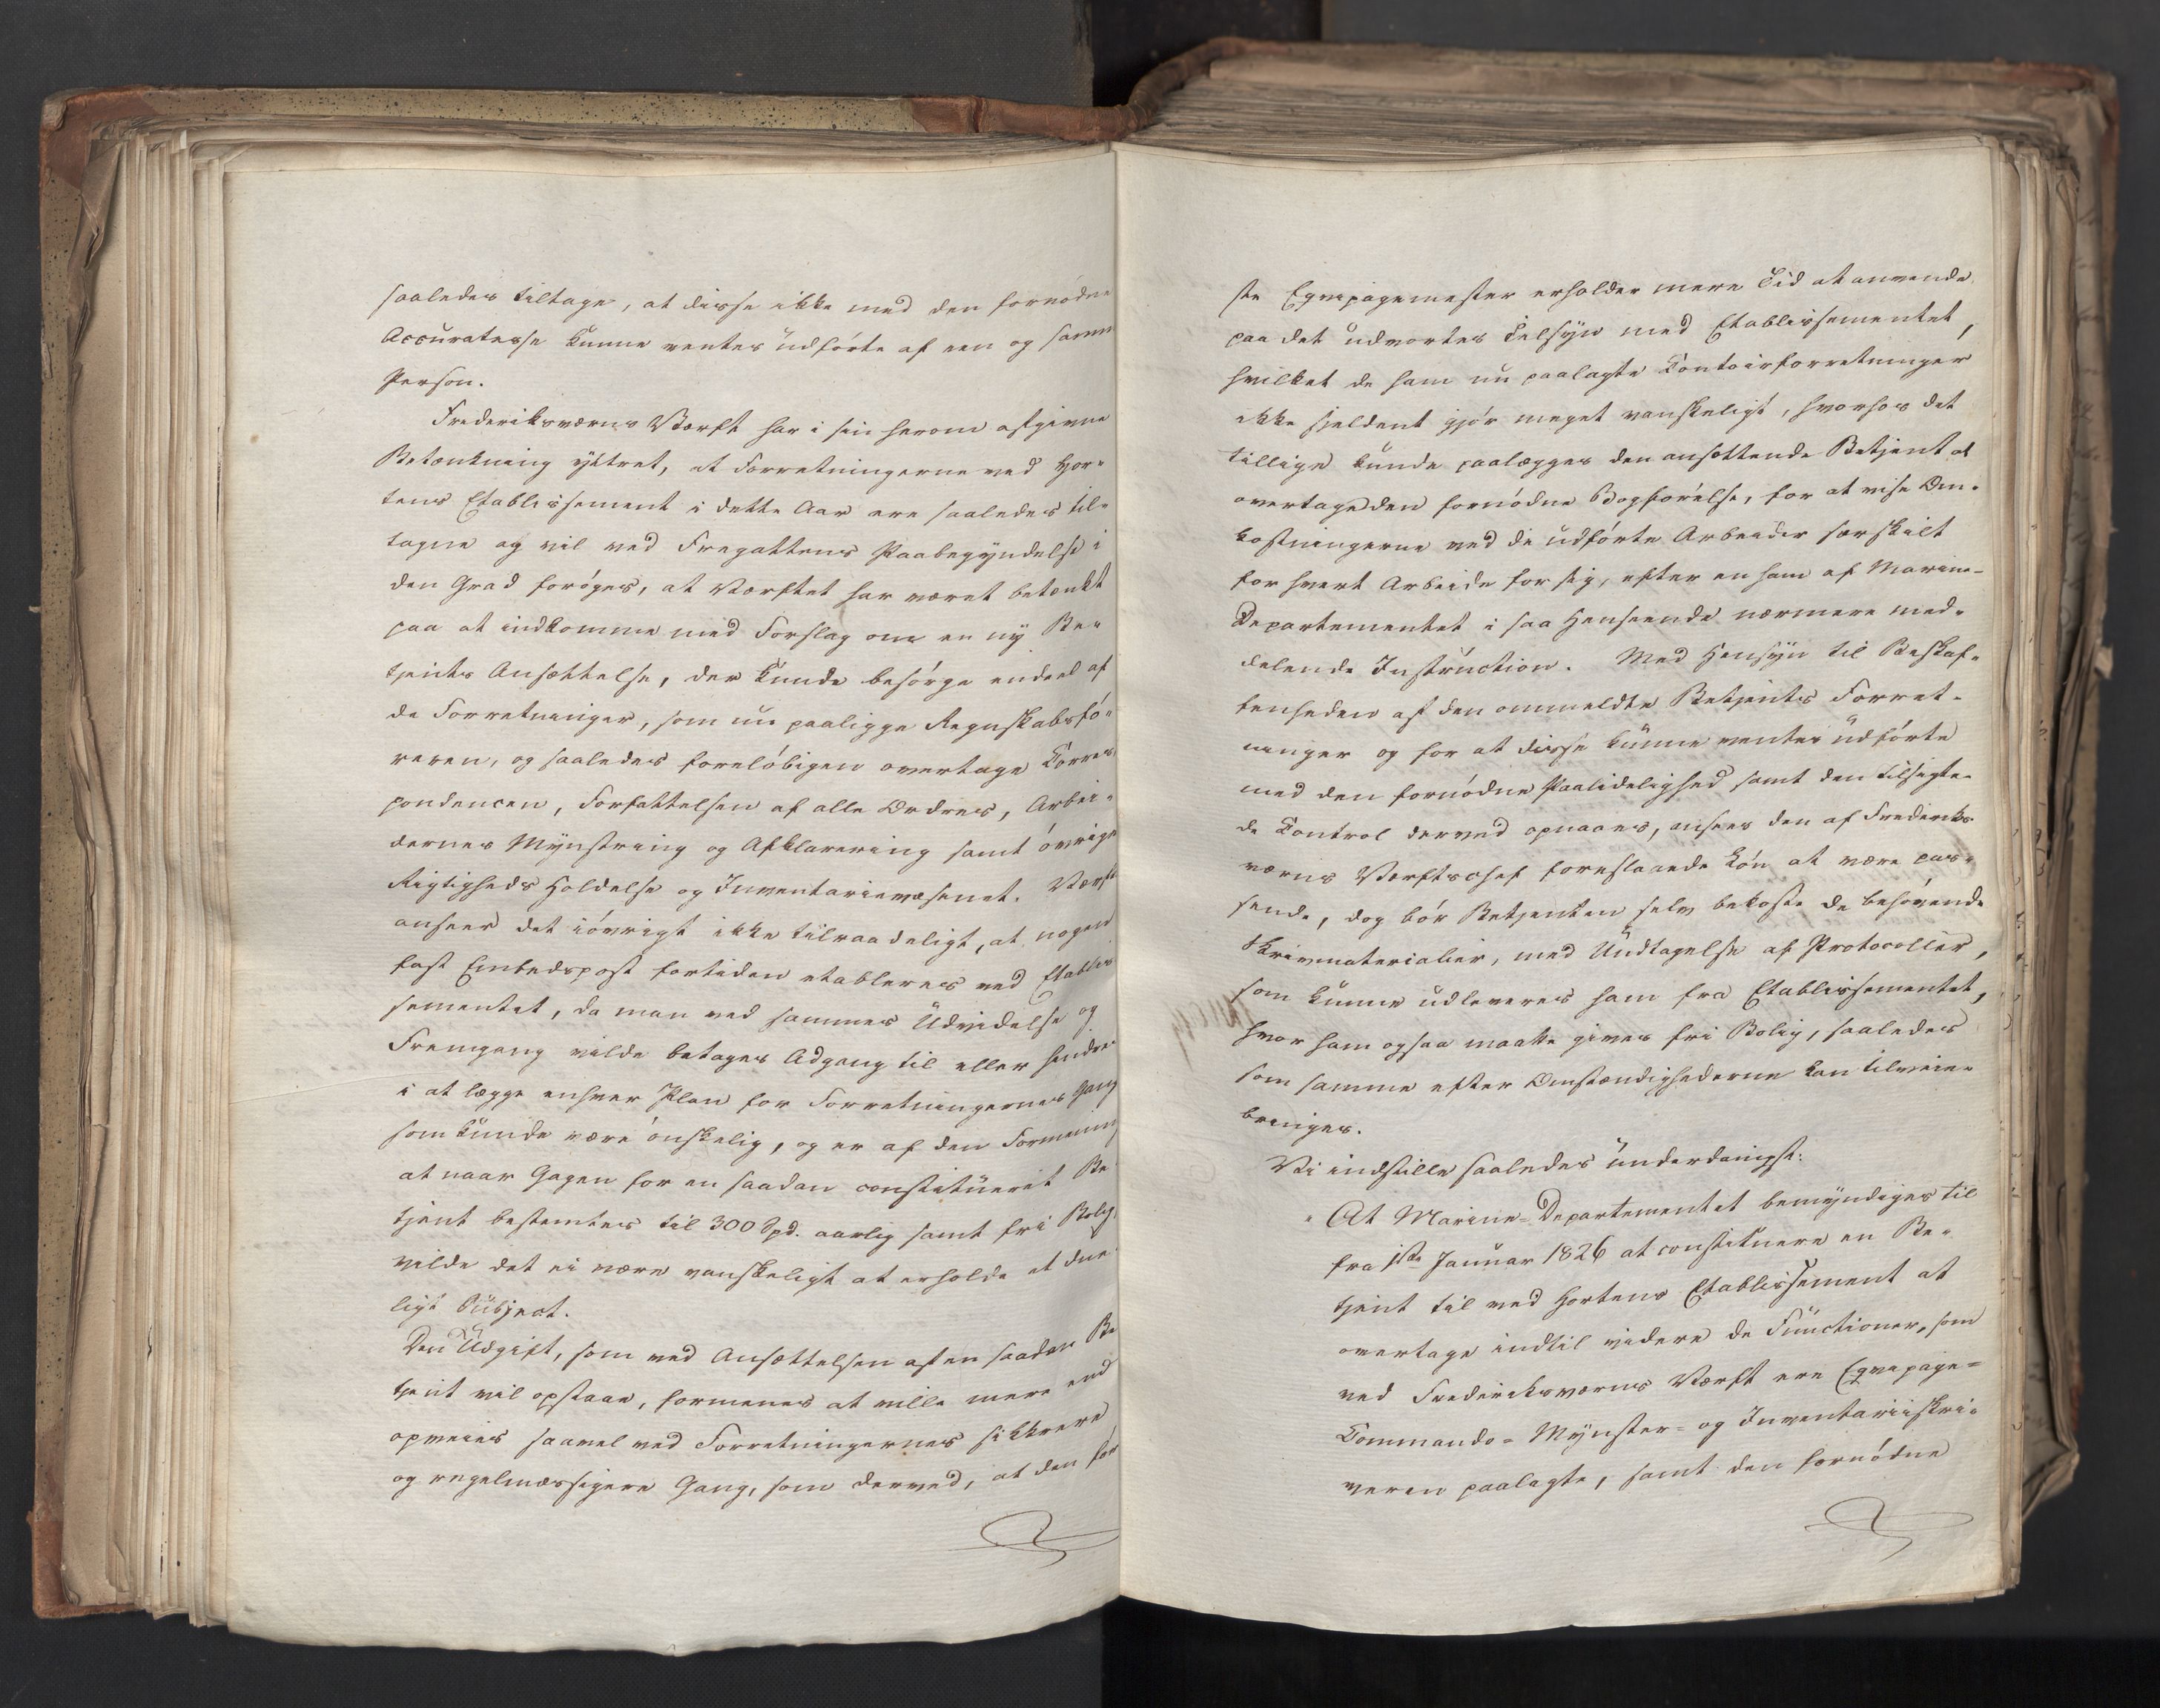 saaledes tiltage, at disse ikke med den fornødne
Accuratesse kunne ventes udførte af een og samme
Person.
Frederiksværns Værft har i sin herom afgivne
Betænkning yttret, at Forretningerne ved Hor-
tens Etablissement i dette Aar ere saaledes til-
tagne og vil ved Fregattens Paabegyndelse i
den Grad forøges, at Værftet har været betænkt
paa at indkomme med Forslag om en ny Be-
tjents Ansættelse, der kunde besørge endeel af
de Forretninger, som nu paaligge Regnskabsfø-
reren, og saaledes foreløbigen overtage Corres
pondencen, Forfattelsen af alle Ordres, Arbei-
dernes Mynstring og Afklarering samt øvrige
Rigtigheds Holdelse og Inventarievæsenet. Værft
anseer det iøvrigt ikke tilraadeligt, at nogen
fast Embedspost fortiden etableres ved Etablis
sementet, da man ved sammes Udvidelse og
Fremgang vilde betages Adgang til eller hindre
i at lægge enhver Plan for Forretningernes Gang
som kunde være ønskelig, og er af den Formening
at naar Gagen for en saadan constitueret Be
tjent bestemtes til 300 Spd. aarlig samt fri Bolig,
vilde det ei være vanskeligt at erholde et due
ligt Subject.
Den Udgift, som ved Ansættelsen af en saadan Be
tjent vil opstaae, formenes at ville mere end
opveies saavel ved Forretningernes sikkrere
og regelmæssigere Gang, som derved, at den før
ste Eqvipagemester erholder mere Tid at anvende
paa det udvortes Tilsyn med Etablissementet,
hvilket de ham nu paalagte Contoirforretninger
ikke sjeldent gjør meget vanskeligt, hvorhos det
tillige kunde paalægges den ansættende Betjent at
overtage den fornødne Bogførelse, for at vise Om-
kostningerne ved de udførte Arbeider særskilt
for hvert Arbeide for sig, efter en ham af Marine-
Departementet i saa Henseende nærmere med-
delende Instruction. Med Hensyn til Beskaf-
fenheden af den ommeldte Betjents Forret-
ninger og for at disse kunne ventes udførte
med den fornødne Paalidelighed samt den tilsigte-
de Control derved opnaaes, ansees den af Frederiks
værns Værftschef foreslaaede Løn at være pas-
sende, dog bør Betjenten selv bekoste de behøvende
Skrivmaterialier, med Undtagelse af Protocoller,
som kunne udleveres ham fra Etablissementet,
hvor ham ogsaa maatte gives fri Bolig, saaledes
som samme efter Omstændighederne kan tilveie-
bringes.
Vi indstille saaledes underdanigst:
"At Marine-Departementet bemyndiges til
fra 1ste Januar 1826 at constituere en Be-
tjent til ved Hortens Etablissement at
overtage indtil videre de Functioner, som
ved Frederiksværns Værft ere Eqvipage-
Commando- Mynster- og Inventarieskri-
veren paalagte, samt den fornødne